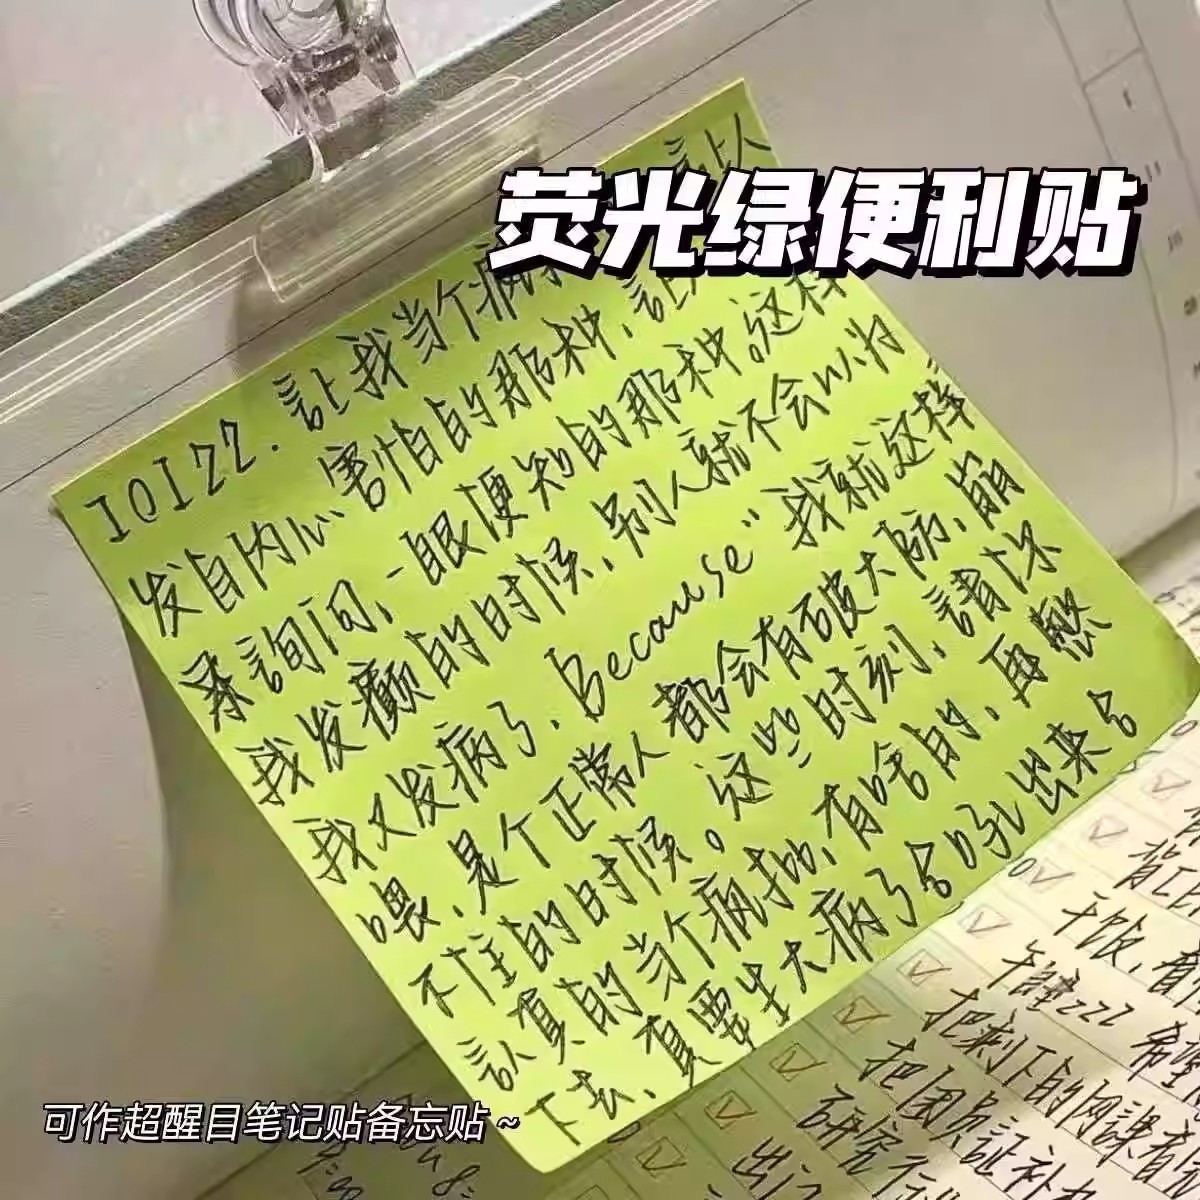 荧光绿便利贴
让人
10122.让我当个疯
发自内心害怕的那种,让
来询问,一眼便知的那种。这样
我发癫的时候,别人就不会以为
我又发病了. Because “我就这样
喂,是个正常人都会有破大防,崩
不住的时候。这些时刻,请你
认真的当个疯批,有啥的,再憋
下去,真要生大病了舍
出来
可作超醒目笔记贴备忘贴~
背
干饭,看
午睡zzz 希望
把剩下的网课看
把团员证补
研究
出门